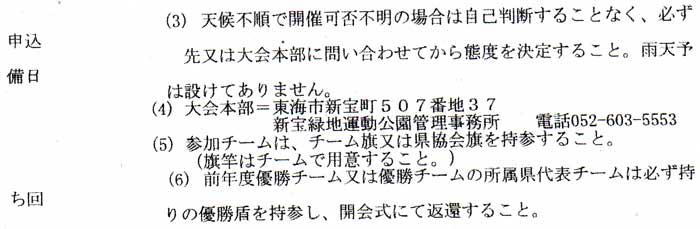 (3) 天候不順で開催可否不明の場合は自己判断することなく、必ず
申込
先又は大会本部に問い合わせてから態度を決定すること。雨天予
備日
は設けてありません。
(4) 大会本部＝東海市新宝町５０７番地３７
新宝緑地運動公園管理事務所 電話052-603-5553
(5) 参加チームは、チーム旗又は県協会旗を持参すること。
(旗竿はチームで用意すること。)
(6) 前年度優勝チーム又は優勝チームの所属県代表チームは必ず持
ち回
りの優勝盾を持参し、開会式にて返還すること。